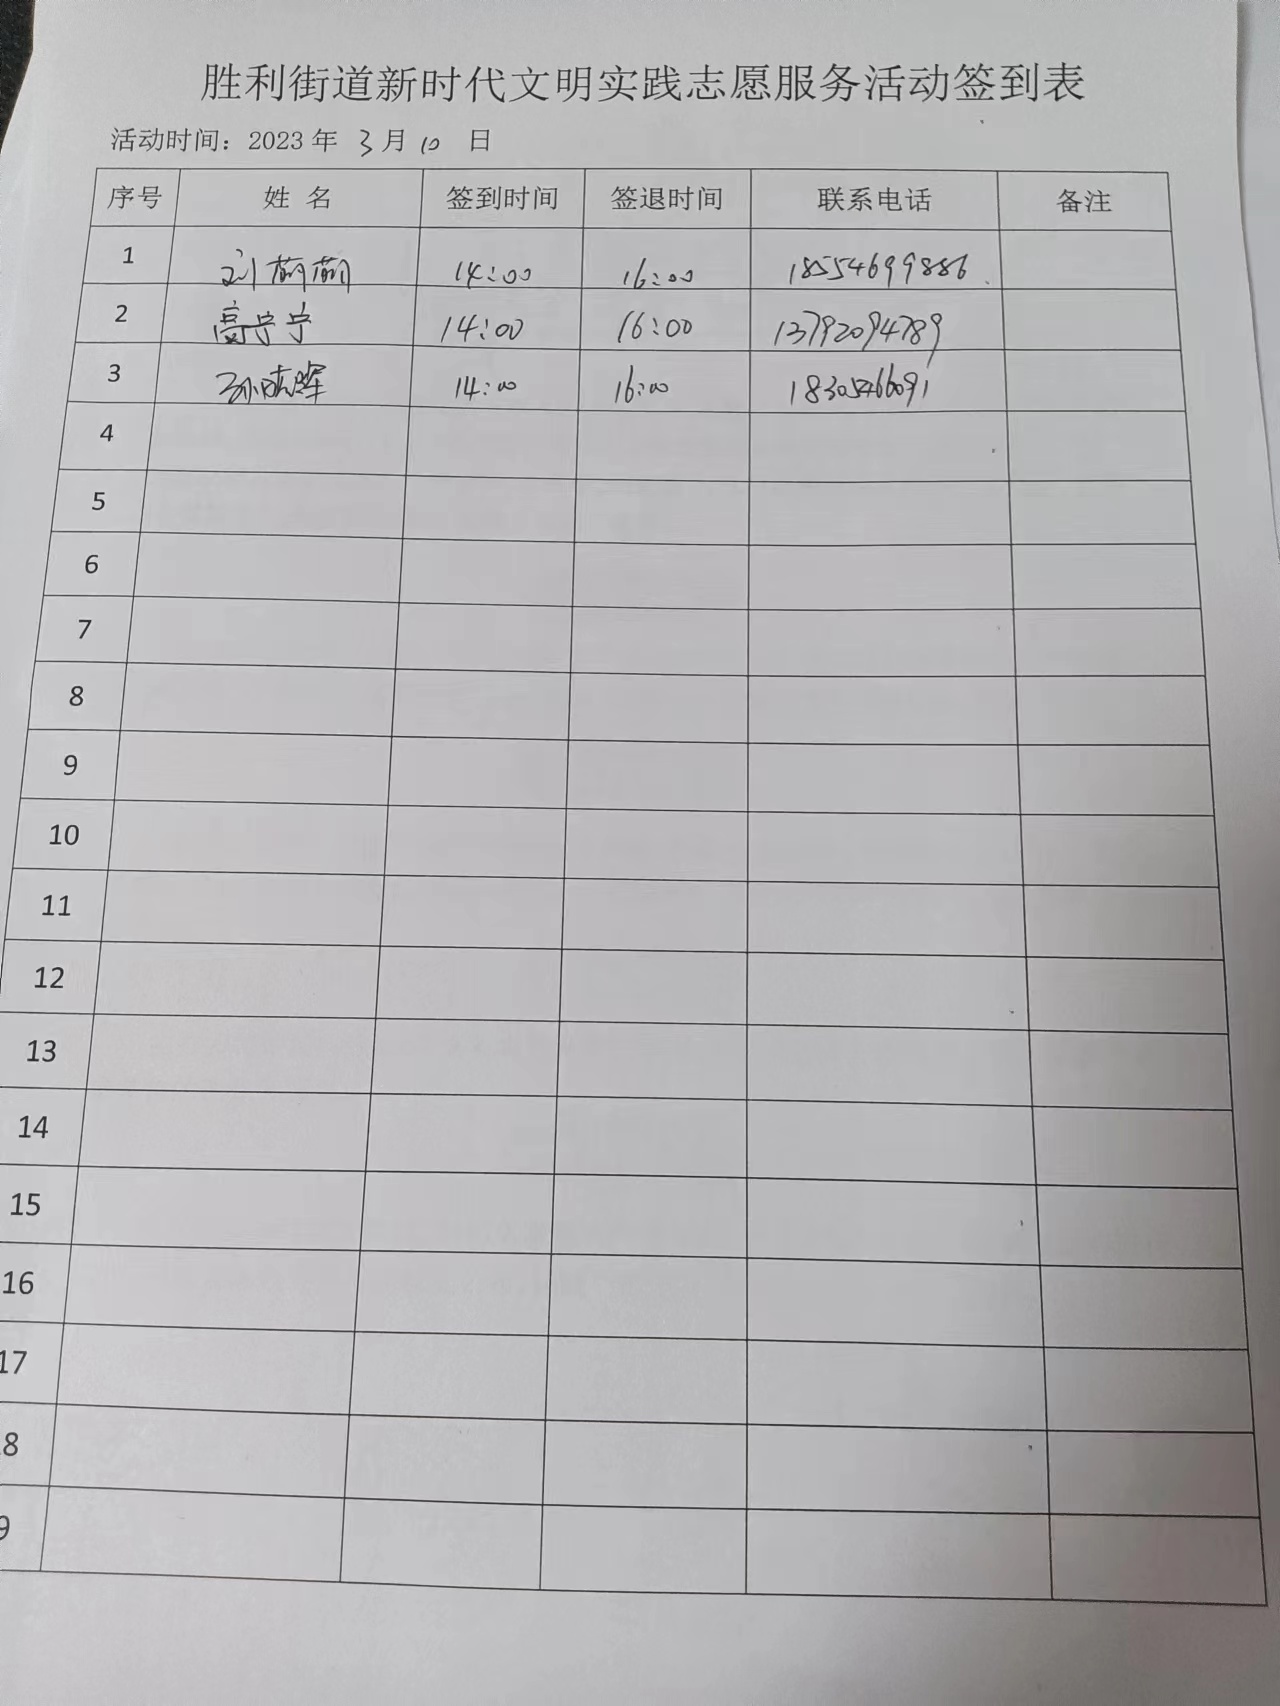 胜利街道新时代文明实践志愿服务活动签到表
活动时间：2023 年 3 月 10 日
序号 姓 名 签到时间 签退时间 联系电话 备注
1 刘萌萌 14:00 16:00 18554699886
2 高宁宁 14:00 16:00 13792094789
3 孙晓辉 14:00 16:00 18305466091
4
5
6
7
8
9
10
11
12
13
14
15
16
17
8
9